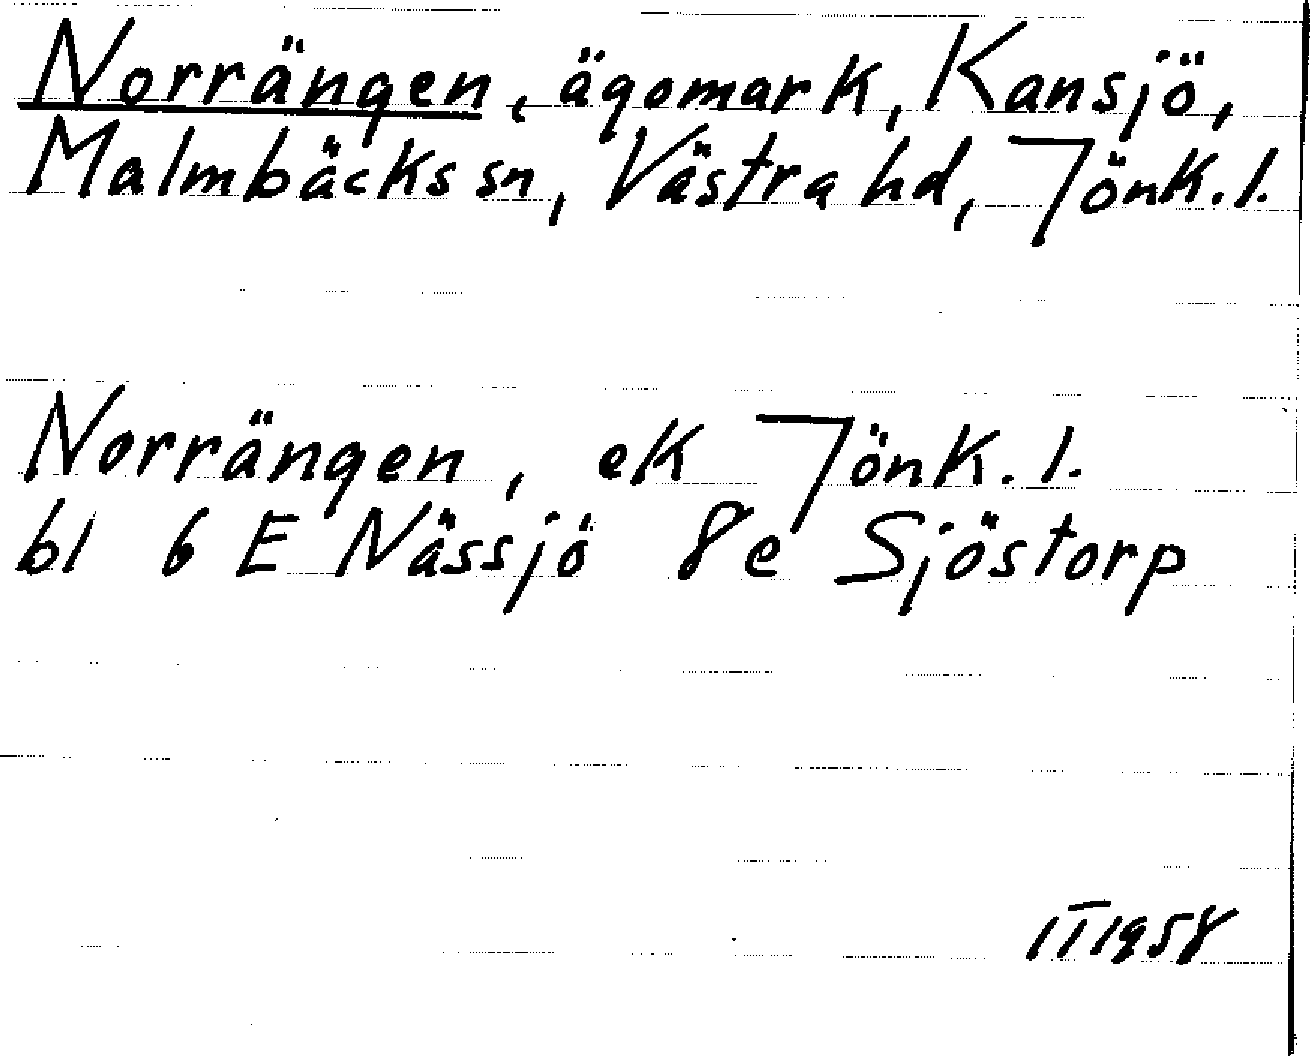 Norrängen, ägomark, Kansjö,
Malmbäcks sn, Västra hd, Jönk.l.
Norrängen, ek Jönk.l.
bl 6 E Nässjö 8e Sjöstorp
1T1958